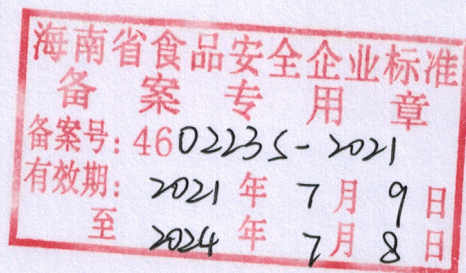 海南省食品安全企业标准
备案专用章
备案号：460223S-2021
有效期：2021年7月9日
至2024年7月8日